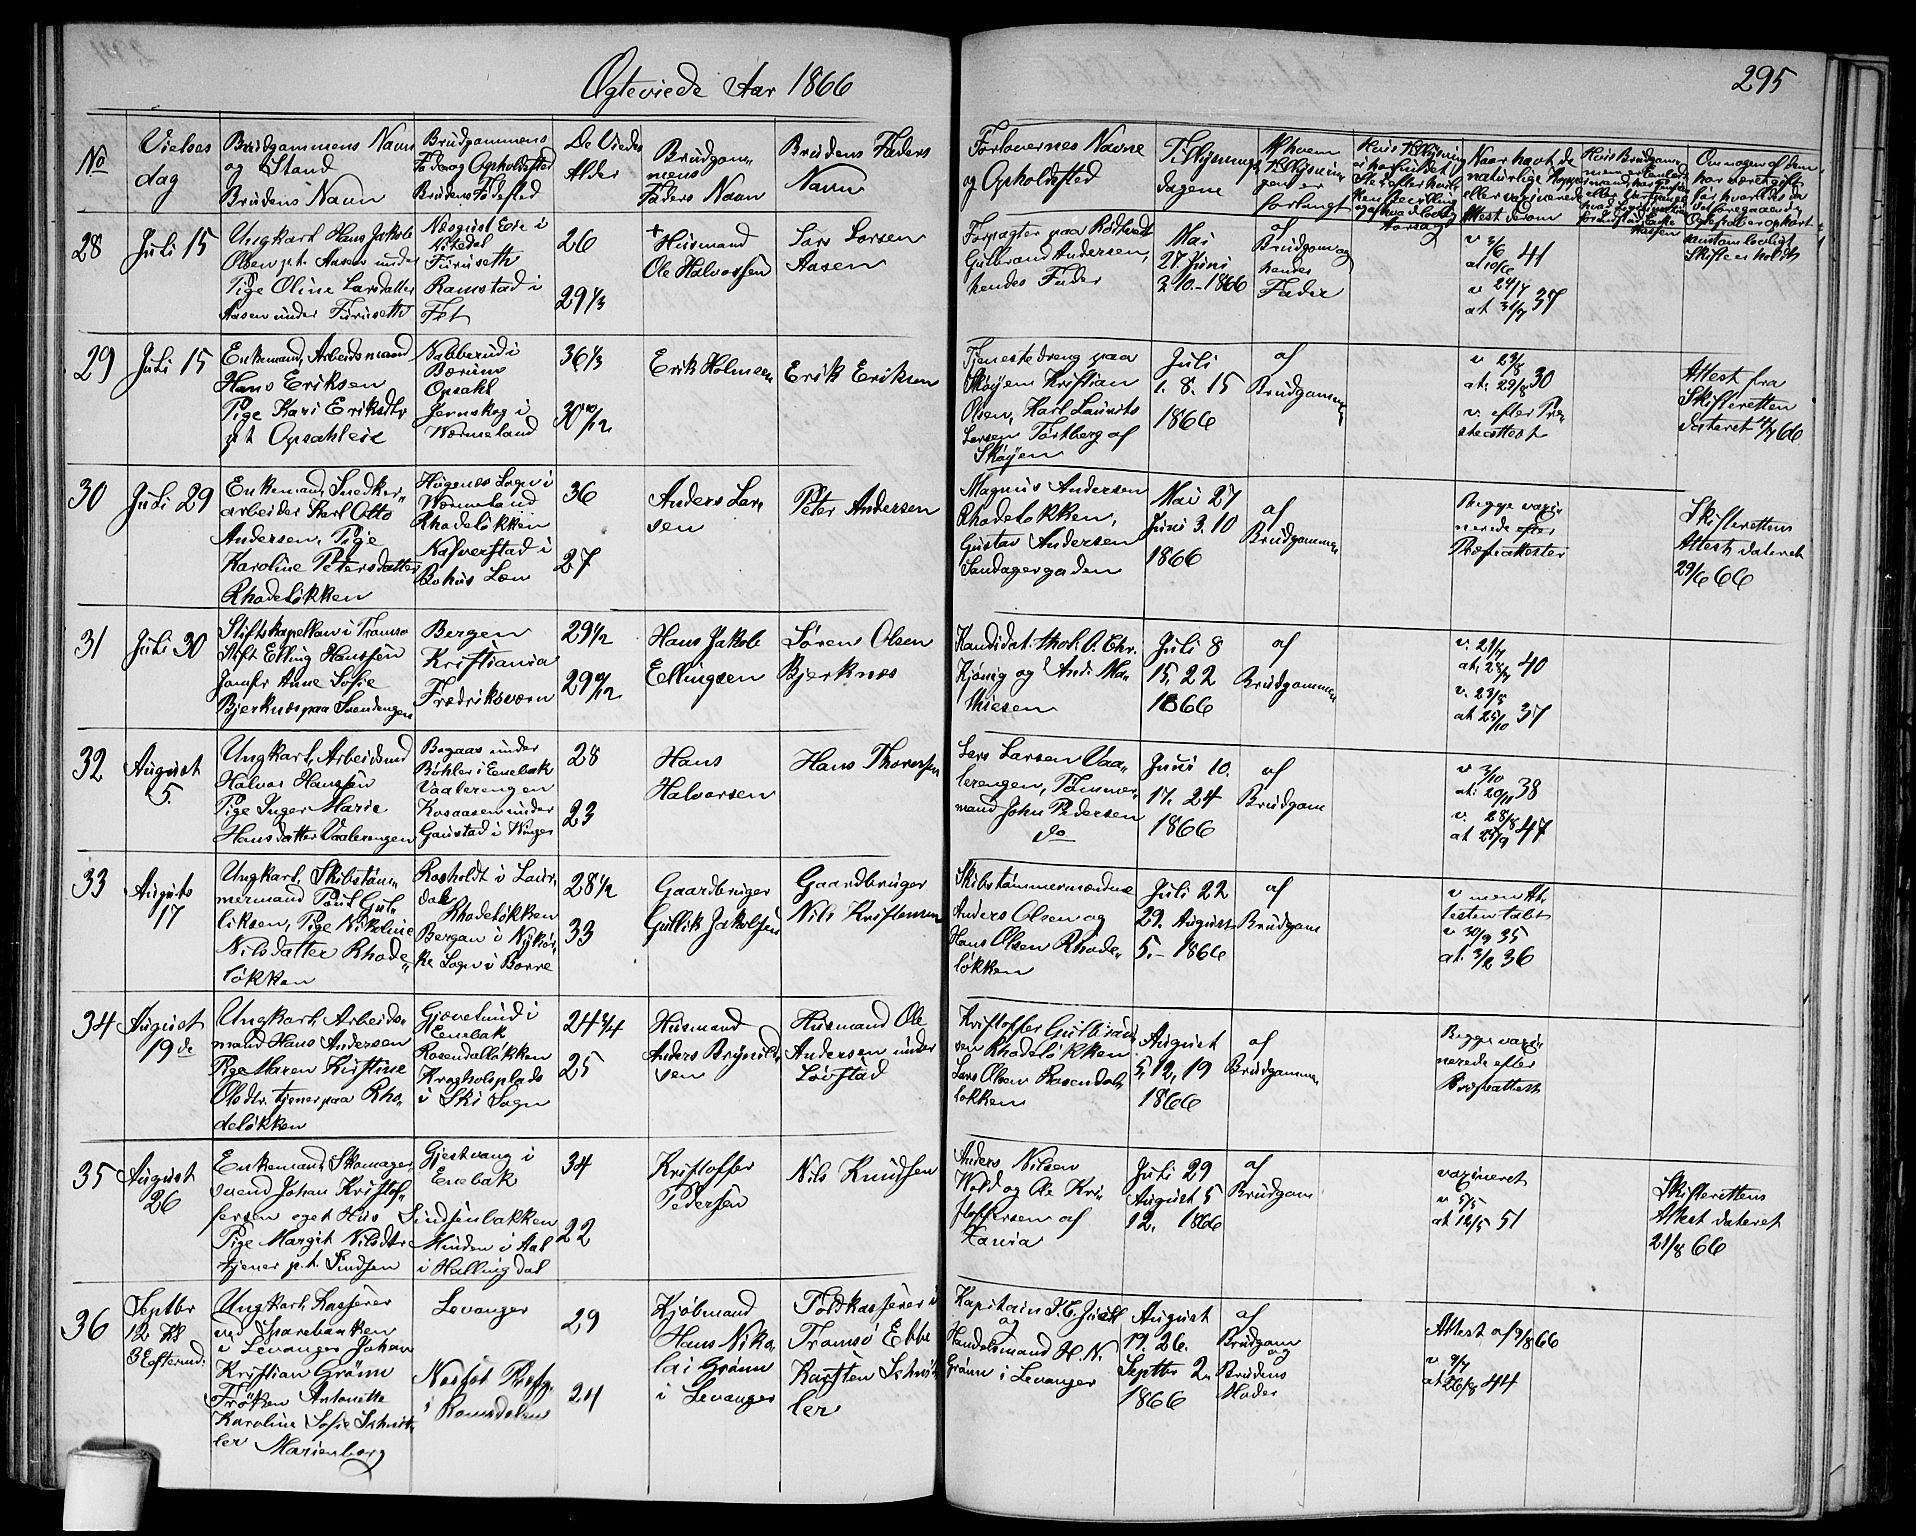 Ægteviede Aar 1866
295
No
Vielses
dag
Brudgommens Navn
og Stand
Brudens Navn
Brudgommens
Føde og Opholdssted
Brudens Fødested
De Viedes
Alder
Brudgom-
mens
Faders Navn
Brudens Faders
Navn
Forlovernes Navne
og Opholdssted
Tillysnings
dagene
Af hvem
Tillysnin
gen er
forlangt
Naar havt de
naturlige Kopper
eller vaxinerede
Attest derom
28
Juli 15
Ungkarl Hans Jakob
Olsen p.t. Aasen under
Pige Oline Larsdatter
Aasen under Furuseth
Næsgust Eie i
Nitedal
Furuseth
Ramstad i
Fet
26
29 1/3
+ Husmand
Ole Halvorsen
Lars Larsen
Aasen
Forpagter paa Rødtvedt
Gulbrand Andersen,
hendes Fader
Mai
27 Juni
3. 10. - 1866
af
Brudgom og
hendes
Fader
v 3/6 41
at 10/6
v 24/7 37
at 31/7
29
Juli 15
Enkemand, Arbeidsmand
Hans Eriksen
Pige Kari Eriksdtr
p.t. Opsahleie
Nabberud i
Bærum
Opsahl
Jernskog i
Wermeland
36 1/3
30 10/12
Erik Holmsen
Erik Eriksen
Tjenestedreng paa
Skøyen Kristian
Olsen, Karl Laurits
Larsen Tørtberg af
Skøyen
Juli
1. 8. 15
1866
af
Brudgommen
v 23/8 30
at. 29/8
v. efter Præ
steattest
Attest fra
Skifteretten
dateret 4/7 66
30
Juli 29
Enkemand, Snedker-
arbeider Karl Otto
Andersen, Pige
Karoline Petersdatter
Rhodeløkken
Høgenes Sogn i
Wermeland
Rhodeløkken
Nafverstad i
Bohus Len
36
27
Anders Lar
sen
Peter Andersen
Magnus Andersen
Rhodeløkken,
Gustav Andersen
Sandagergaden
Mai 27
Juni 3. 10
1866
af
Brudgommen
Begge vaxi
nerede efter
Præsteattester
Skifterettens
Attest dateret
29/6 66
31
Juli 30
Stiftskapellan i Tromsø
Stift Elling Hanssen
Jomfr Anne Sofie
Bjerknes paa Svendengen
Bergen
Kristiania
Fredriksværn
29 1/2
29 9/12
Hans Jakob
Ellingsen
Søren Olsen
Bjerknes
Kandidat. theol. O. Chr.
Kjønig og And. Ma-
thiesen
Juli 8
15. 22
1866
af
Brudgommen
v. 21/7 40
at. 28/7
v. 23/8 37
at 25/10
32
August
5.
Ungkarl, Arbeidsmd
Halvor Hanssen
Pige Inger Marie
Hansdatter Vaalerengen
Begaas under
Bøhler i Enebak
Vaalerengen
Kosaasen under
Gaustad i Winger
28
23
Hans
Halvorsen
Hans Thoresen
Lars Larsen Vaa-
lerengen, Tømmer-
mand John Pedersen
do
Juni 10.
17. 24
1866
af
Brudgom
v 3/10 38
at. 20/11
v. 28/8 47
at 25/9
33
Auguts
17
Ungkarl, Skibstøm-
mermand Poul Gul-
liksen, Pige Nikoline
Nilsdatter Rhode-
løkken
Rosholdt i Laur-
dal
Rhodeløkken
Bergan i Nykir-
ke Sogn i Borre
28 1/2
33
Gaardbruger
Gullik Jakobsen
Gaardbruger
Nils Kristensen
Skibstømmermændene
Anders Olsen og
Hans Olsen Rhode-
løkken
Juli 22
29. August
5. - 1866
af
Brudgom
v men At-
testen tabt
v 30/9 35
at. 3/2 36
34
August
19de
Ungkarl, Arbeids-
mand Hans Andersen
Pige Maren Kirstine
Olsdtr. tjener paa Rho-
deløkken
Gjævelund i
Enebak
Rosendalløkken
Kragholsplads
i Ski Sogn
24 3/4
25
Husmand
Anders Brynil-
sen
Husmand Ole
Andersen under
Løvstad
Kristoffer Gulbrand
sen Rhodeløkken
Lars Olsen Rosendal
løkken
August
5, 12, 19
1866
af
Brudgommen
Begge vaxi-
nerede efter
Præsteattest
35
August
26
Enkemand, Skomager
svend Johan Kristof-
fersen eget Hus
Pige Margit Nilsdtr
tjener p.t. Sindsen
Gjestvang i
Enebak
Sindsenbakken
Minden i Aal
i Hallingdal
34
22
Kristoffer
Pedersen
Nils Knudsen
Anders Nilsen
Wold og Ole Kri-
stoffersen af
Xania
Juli 29
August 5
12. 1866
af
Brudgom
vaxineret
v 5/5 51
at 12/5
Skifterettens
Attest dateret
21/8 66
36
Septbr
12 Kl
3 Efterm:
Ungkarl, Kasserer
ved Sparebanken
i Levanger Johan
Kristian Grønn
Frøken Antonette
Karoline Sofie Schnit-
ler Marienborg
Levanger
Nesset Præstg
i Romsdalen
29
24
Kjøbmand
Hans Niko-
lai Grønn
i Levanger
Toldkasserer i
Tromsø Ebbe
Karsten Schnit-
ler
Kapitain J. C. Juell
og
Handelsmand H. N.
Grønn i Levanger
August
19. 26.
Septbr 2.
1866
af
Brudgom
og
Brudens
Moder
Attest af 9/8 66
v 9/7 44
at 26/8